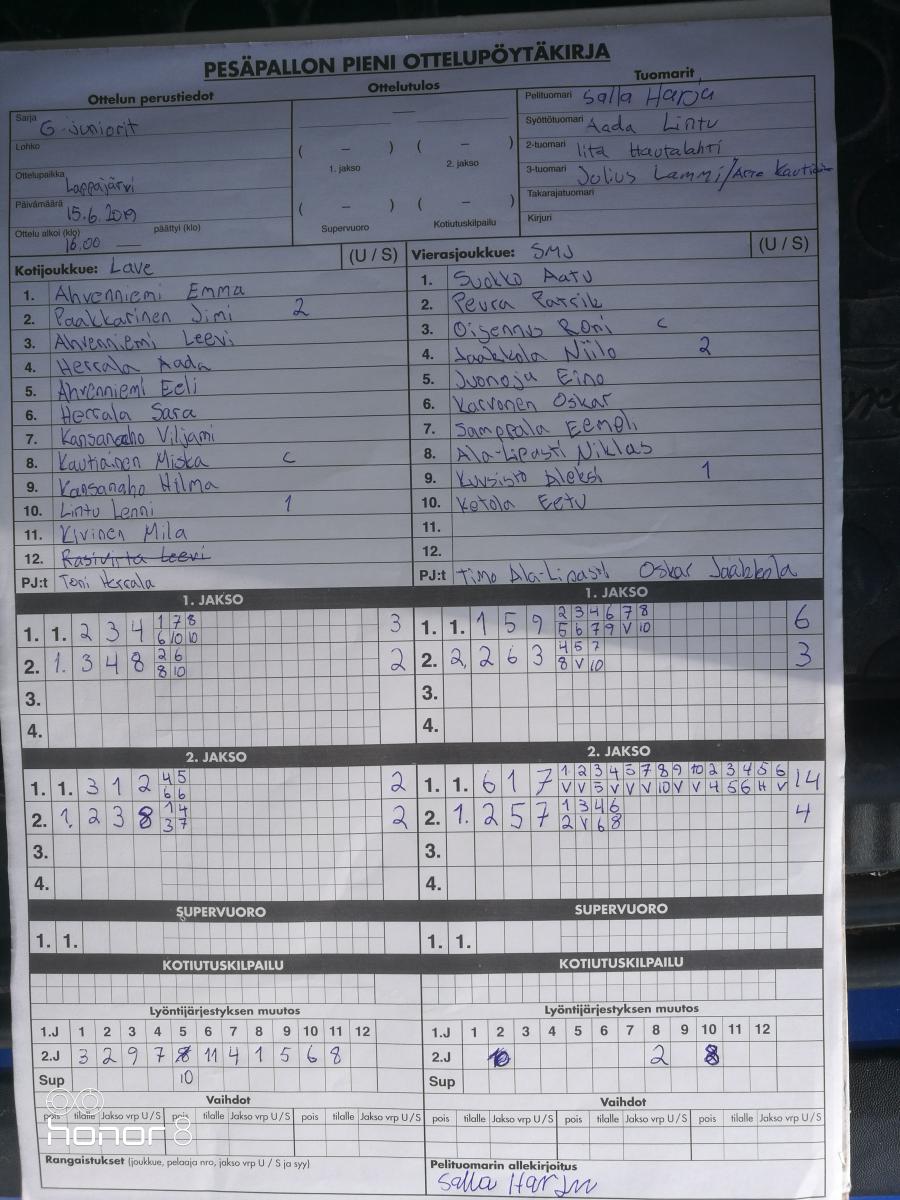 PESÄPALLON PIENI OTTELUPÖYTÄKIRJA
Ottelun perustiedot
Ottelutulos
Tuomarit
Sarja G-juniorit
Lohko
Ottelupaikka Lappajärvi
Päivämäärä 15.6.2019
Ottelu alkoi (klo) 16.00 päättyi (klo)
—
( – ) ( – )
1. jakso 2. jakso
( – ) ( – )
Supervuoro Kotiutuskilpailu
Pelituomari Salla Harju
Syöttötuomari Aada Lintu
2-tuomari Iita Hautalahti
3-tuomari Julius Lammi/
Takarajatuomari
Kirjuri
Kotijoukkue: Lave (U / S)
1. Ahvenniemi Emma
2. Paakkarinen Jimi 2
3. Ahvenniemi Leevi
4. Herrala Aada
5. Ahvenniemi Eeli
6. Herrala Sara
7. Kansanaho Viljami
8. Kautiainen Miska C
9. Kansanaho Hilma
10. Lintu Lenni 1
11. Kivinen Mila
12. Rasivirta Leevi
PJ:t Toni Herrala
Vierasjoukkue: SMJ (U / S)
1. Suokko Aatu
2. Peura Patrik
3. Oijennus Roni C
4. Jaakkola Niilo 2
5. Juonoja Eino
6. Karvonen Oskar
7. Samppala Eemeli
8. Ala-Lipasti Niklas
9. Kuusisto Aleksi 1
10. Ketola Eetu
11.
12.
PJ:t Timo Ala-Lipasti Oskar Jaakkola
1. JAKSO
1. 1. 2 3 4 1 7 8 3
6 10 10
2. 1. 3 4 8 2 6 2
8 10
3.
4.
1. JAKSO
1. 1. 1 5 9 2 3 4 6 7 8 6
5 6 7 9 V 10
2. 2. 2 6 3 4 5 7 3
8 V 10
3.
4.
2. JAKSO
1. 1. 3 1 2 4 5 2
6 6
2. 1. 2 3 8 1 4 2
3 7
3.
4.
2. JAKSO
1. 1. 6 1 7 1 2 3 4 5 7 8 9 10 2 3 4 5 6 14
V V 5 V V V 10 V V 4 5 6 H V
2. 1. 2 5 7 1 3 4 6 4
2 V 6 8
3.
4.
SUPERVUORO
1. 1.
SUPERVUORO
1. 1.
KOTIUTUSKILPAILU
KOTIUTUSKILPAILU
Lyöntijärjestyksen muutos
1.J 1 2 3 4 5 6 7 8 9 10 11 12
2.J 3 2 9 7 8 11 4 1 5 6 8
Sup 10
Lyöntijärjestyksen muutos
1.J 1 2 3 4 5 6 7 8 9 10 11 12
2.J 2 8
Sup
Vaihdot
pois tilalle Jakso vrp U / S pois tilalle Jakso vrp U / S pois tilalle Jakso vrp U / S
Vaihdot
pois tilalle Jakso vrp U / S pois tilalle Jakso vrp U / S pois tilalle Jakso vrp U / S
Rangaistukset (joukkue, pelaaja nro, jakso vrp U / S ja syy)
Pelituomarin allekirjoitus
Salla Harju
honor 8